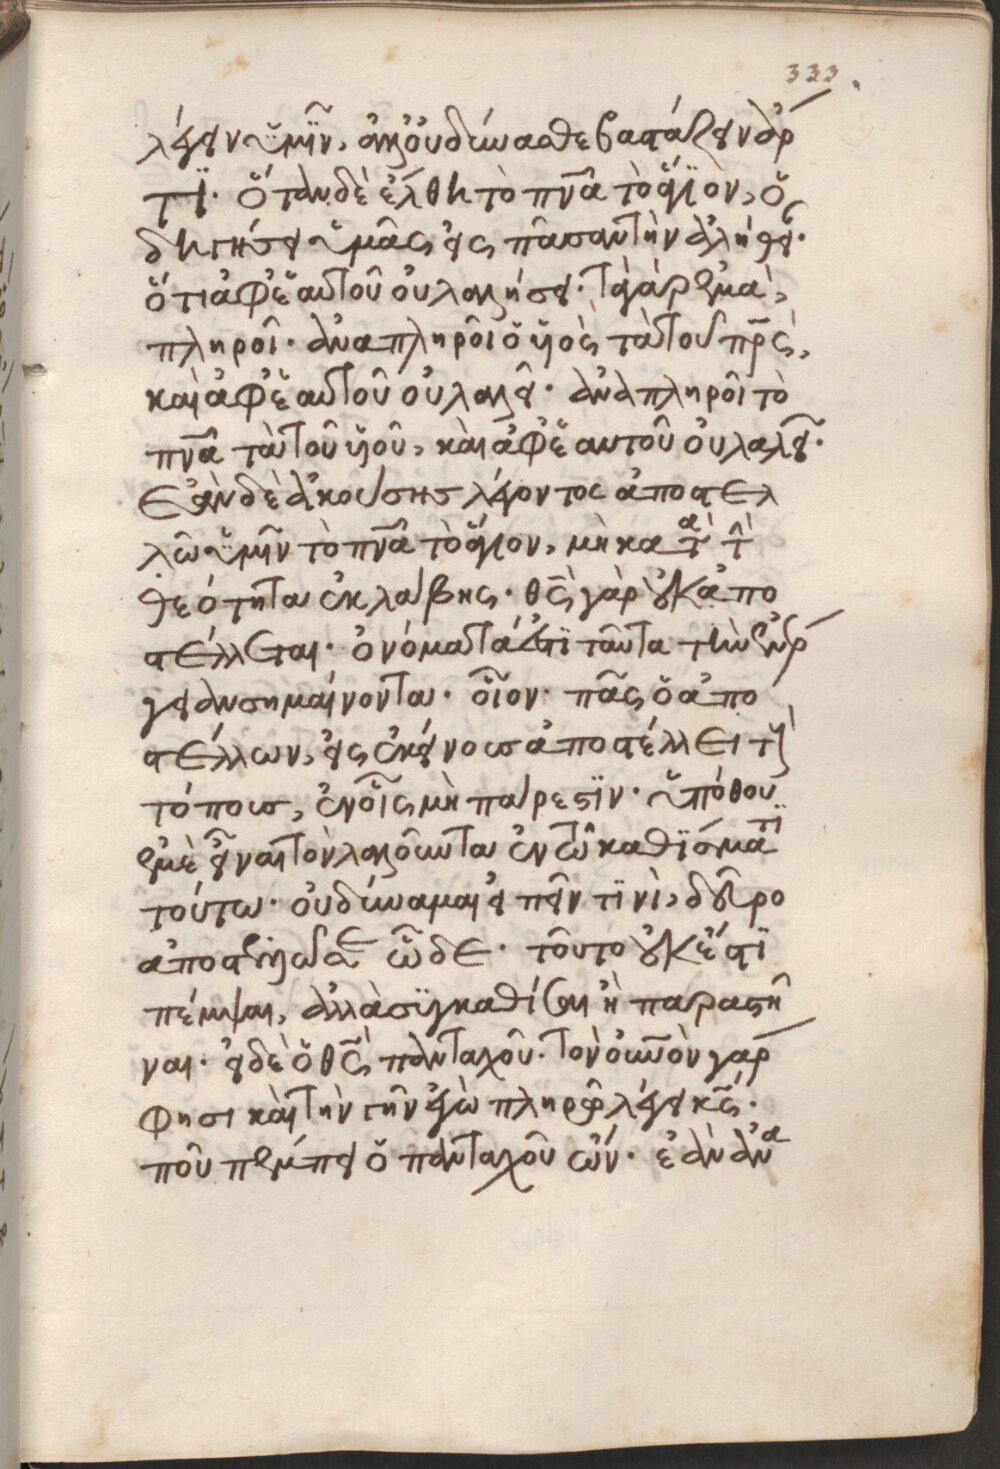 333.
λέγειν ὑμῖν, ἀλλ' οὐ δύνασθε βαστάζειν ἄρ
τϊ. ὅταν δὲ ἔλθη τὸ πνᾶ τὸ ἅγϊον, ὁ
δηγήσει ὑμᾶς εἰς πᾶσαν τὴν ἀλήθει.
ὅτι ἀφ' ἑαυτοῦ οὐ λαλήσει. τὰ γὰρ ἐμὰ,
πληροῖ. ἀναπληροῖ ὁ υἱὸς τὰ τοῦ πρς,
καὶ ἀφ' ἑαυτοῦ οὐ λαλεῖ. ἀναπληροῖ τὸ
πνᾶ τὰ τοῦ υἱοῦ, καὶ ἀφ' ἑαυτοῦ οὐ λαλεῖ.
Ἐὰν δὲ ἀκούσης λέγοντος ἀποστελ
λῶ ὑμῖν τὸ πνᾶ τὸ ἅγιον, μὴ κατὰ τ
θεότητα ἐκλάβης. θς γὰρ οὐκ ἀπο
στέλλεται. ὀνόματά ἐστϊ ταῦτα τὴν ἐνέρ
γειαν σημαίνοντα. οἷον. πᾶς ὁ ἀπο
στέλλων, εἰς ἐκείνους ἀποστέλλει τοὺς
τόπους, ἐν οἷς μὴ πάρεστϊν. ὑπόθου
ἐμὲ εἶναι τὸν λαλοῦντα ἐν τῶ καθϊσματϊ
τούτω. οὐ δύναμαι εἰπεῖν τϊνὶ, δεῦρο
ἀποστείλω σε ὧδε. τοῦτο οὐκ ἔστϊ
πέμψαι, ἀλλὰ συγκαθίσαι ἢ παραστῆ
ναι. εἰ δὲ ὁ θς πανταχοῦ. τὸν οὐνον γάρ
φησι καὶ τὴν γῆν ἐγὼ πληρῶ λέγει κς.
ποῦ πέμπει ὁ πανταχοῦ ὤν. ἐὰν ἀνα